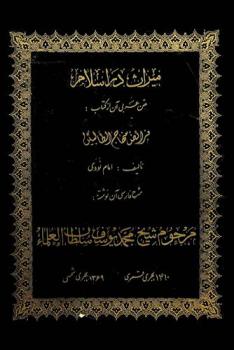 میراث در اسلام
متن عربی آن از کتاب :
من الفقه منهاج الطالبین
تألیف : امام نووی
شرح فارسی آن نوشته :
مرحوم شیخ محمد یوسف سلطان العلماء
۱۴۱۰ هجری قمری ۱۳۶۹ هجری شمسی